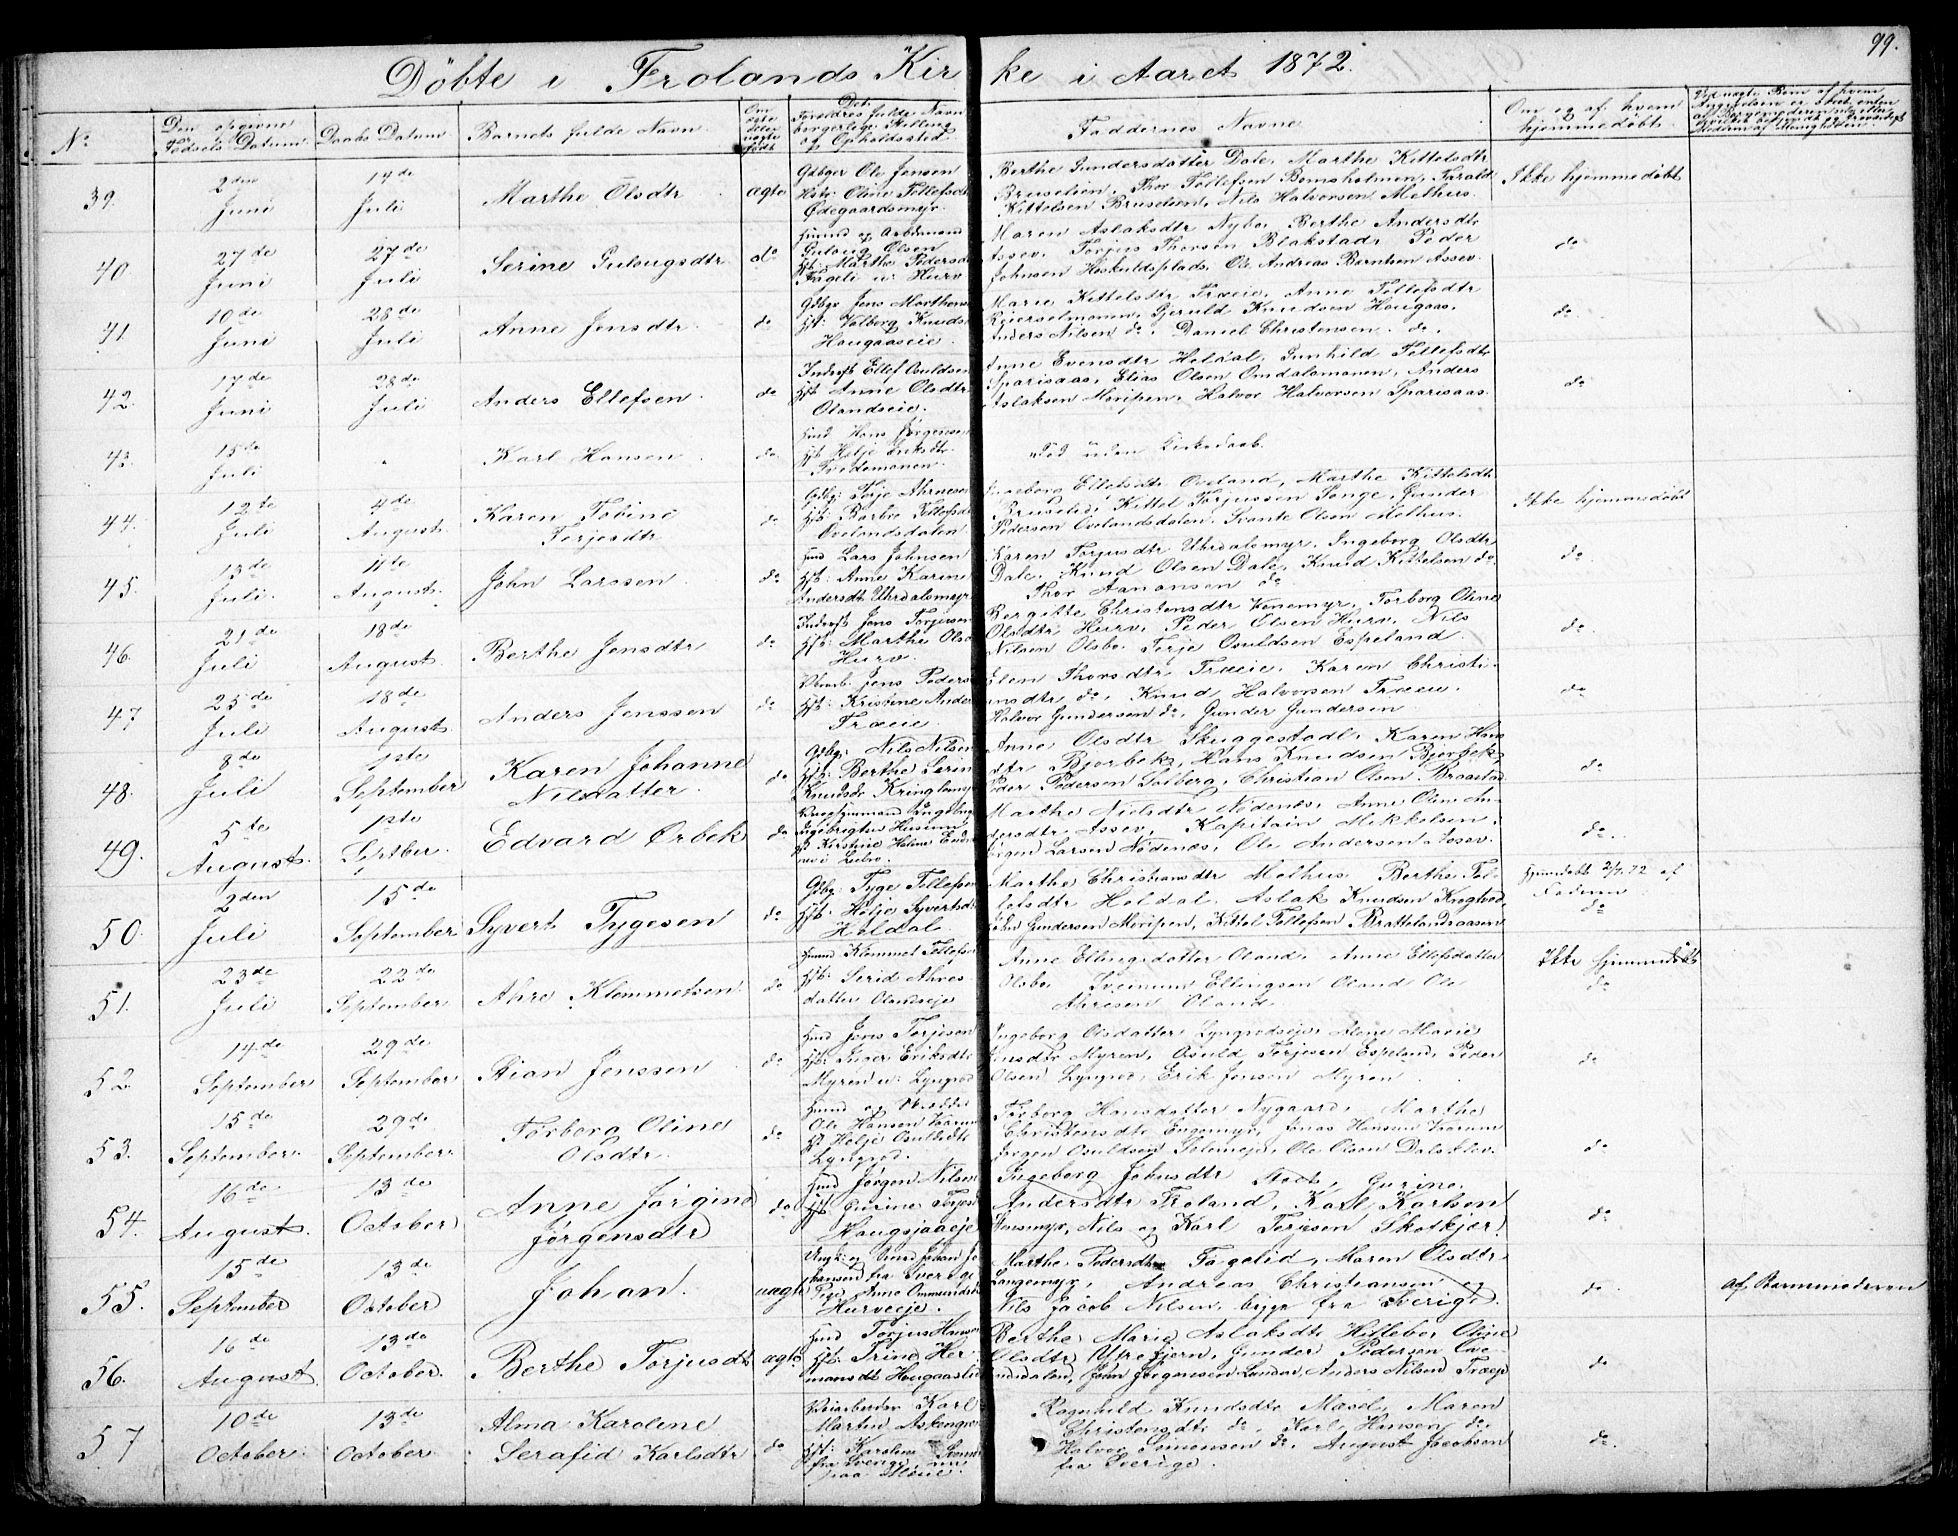 99.
Döbte i Frolands Kirke i Aaret 1872.
No
Den opgivne Fødsels Datum
Daabs Datum
Barnets fulde Navn
Om ægte eller uægte født
Det. Forældres fulde Navn borgerlige Stilling og Opholdssted
Faddernes Navne
Om og af hvem hjemmedøbt.
39. 2den Juni 14de Juli Marthe Olsdtr ægte
Gdbger Ole Jensen
Hstr Oline Tellefsdt
Ødegaardsmyr.
Berthe Gundersdatter Dale, Marthe Kittelsdtr
Bruselien, Thor Tellefsen Bomsholmen, Tarald
Kittelsen Bruselien, Nils Halvorsen Melhus.
Ikke hjemmedøbt
40. 27de Juni 27de Juli Serine Gulougsdtr do
Huusd og Arbmand
Guloug Olsen
Hst: Marthe Pedersd
Fageli u: Hurv
Maren Aslaksdtr Nybo, Berthe Andersdtr
Assev. Torjus Thorsen Blakstad, Peder
Johnsen Heskuldsplads, Ole Andreas Berntsen Assev.
do
41. 10de Juni 28de Juli Anne Jensdtr do
Gdbgr Jens Marthens
Hst: Valborg Knuds
Hougaaseie.
Marie Kittelsdtr Træeie, Anne Tellefsdtr
Reierselmoen, Gjeruld Knudsen Hougaas,
Anders Nilsen do, Daniel Christensen do.
do
42. 17de Juni 28de Juli Anders Ellefsen do
Inderst Ellef Osuldsen
Hst: Anne Olsdtr
Olandseie.
Anne Evensdtr Heldal, Gunhild Tellefsdtr
Sparisaas, Elias Olsen Omdalsmonen, Anders
Aslaksen Moripen, Halvor Halvorsen Sparisaas.
do
43. 15de Juli " Karl Hansen do
Husd Hans Jørgensen
Hst Helje Eriksdtr
Tvedemonen.
Død uden Kirkedaab.
44. 12te Juli 4de August Karen Tobine Terjesdtr do
Gdbg: Terje Ahresen
Hst: Barbro Tellefsdtr
Ovelandsdalen
Ingeborg Ellefsdtr Oveland, Marthe Kittelsdtr
Bruselid, Kittel Torjussen Songe, Gunder
Pedersen Ovelandsdalen, Svante Olsen Melhus.
Ikke hjemmedøbt
45. 13de Juli 11te August John Larssen do
Husd Lars Johnsen
Hst: Anne Karine
Andersdt Uhrdalsmyr
Karen Torjusdtr Uhrdalsmyr, Ingeborg Olsdtr
Dale, Knud Olsen Dale, Knud Kittelsen do
Thor Aanonsen do
do
46. 21de Juli 18de August Berthe Jensdtr do
Inderst Jens Torjusen
Hst: Marthe Olsd
Hurv.
Bergitte Christensdtr Venemyr, Torborg Oline
Olsdtr Hurv, Peder Olsen Hurv, Nils
Nilsen Olsbo, Terje Osuldsen Espeland
do
47 25de Juli 18de August Anders Jenssen do
Jens Peders
Hst: Kristine Ander
Træeie.
Elen Thorsdtr Træeie, Karen Christi-
ansdtr do, Knud Halvorsen Træeie,
Halvor Gundersen do, Gunder Gundersen
do
48. 8de Juli 1ste September Karen Johanne Nilsdatter do
Gdbg: Nils Nilsen
Hst: Berthe Serin
Knudsdt Kringlemyr
Anne Olsdtr Skuggestad, Karen Hans
dtr Bjorbek, Hans Knudsen Bjorbek,
Peder Pedersen Solberg, Christian Olsen Braastad
do
49. 5te August 1ste Septber. Edvard Ørbek do
Ingebrigtsen
Hst Kirstine Helene
Marthe Nielsdtr Nødenæs, Anne Oline An-
dersdtr Assev, Kapitain Mikkelsen,
Jørgen Larsen Nødenæs, Ole Andersen Assev.
do.
50. 2den Juli 15de September Syvert Tygesen do
Gdbg: Tyge Tellefsen
Hst: Helje Syvertsd
Heldal
Marthe Christiansdtr Melhus, Berthe Tel-
lefsdtr Heldal, Aslak Knudsen Knogtved,
John Gundersen Moripen, Kittel Tellefsen Brattelandsaasen
Hjemdøbt 2/7.72 af Faderen
do
51. 23de Juli 22de September Ahre Klemmetsen do
Huusd Klemmet Tellefsen
Hst: Sirid Ahres
datter Olandseje
Anne Ellingsdatter Oland, Anne Ellefsdatter
Olsbo, Sveinum Ellingsen Oland Ole
Ahresen Oland.
Ikke hjemmedøbt
do
52. 14de September 29de September Stian Jenssen do
Husd Jens Terjesen
Hst: Inger Eriksdtr
Myren u: Lyngrod
Ingeborg Olsdatter Lyngrodseje, Alene Marie
Jensdtr Myren, Osuld Terjesen Espeland, Peder
Olsen Lyngrod, Erik Jensen Myren
do
53. 15de September 29de September. Torborg Oline Olsdtr. do
Husmd og
Ole Hansen
Hst Helje Osuldsdtr
Lyngrod.
Torborg Hansdatter Nygaard, Marthe
Christensdtr Engemyr, Jonas Hansen
Jørgen Osuldsen, Ole Olsen Dalsklev.
do
54. 16de August. 13de October Anne Jørgine Jørgensdtr do
Husd Jørgen Nilsen
Hst Gurine Terjesd
Hougsjaaeje
Ingeborg Johnsdtr Stoes, Gurine
Andersdtr Froland, Karl Karlsen
Husmyr, Nils og Karl Terjesen Skotkjær.
do
55. 15de September 13de October Johan. uægte
Ungk: og Johan Jo
hansen fra Sverige
Pige Anne Ommundsdt
Hurveeje.
Marthe Pedersdtr Fagelid, Maren Olsdtr
Langemyr, Andreas Christiansen og
Nils Jacob Nilsen, begge fra Sverige.
do
af Barnmoderen
56. 16de August 13de October. Berthe Torjusdt ægte
Husd Torjus Hansen
Hst: Trine Her
mansdt Hougaaslid
Berthe Marie Aslaksdtr Hitteber Oline
Olsdtr Uttrefjern, Gunder Pedersen Ove-
landsdalen, John Jørgensen Landen, Anders Nilsen Træeje
do
57 10de October. 13de October. Alma Karoline Serafid Karlsdtr do
Veiarbeider Karl
Martin Aspengren
Hst: Karoline Svens
fra Sverige, nu
paa Mesel.
Ragnhild Knudsdtr Mæsel, Maren
Christensdtr do, Karl Hansen do,
Halvor Simonsen do, August Jacobsen
fra Sverige.
do.